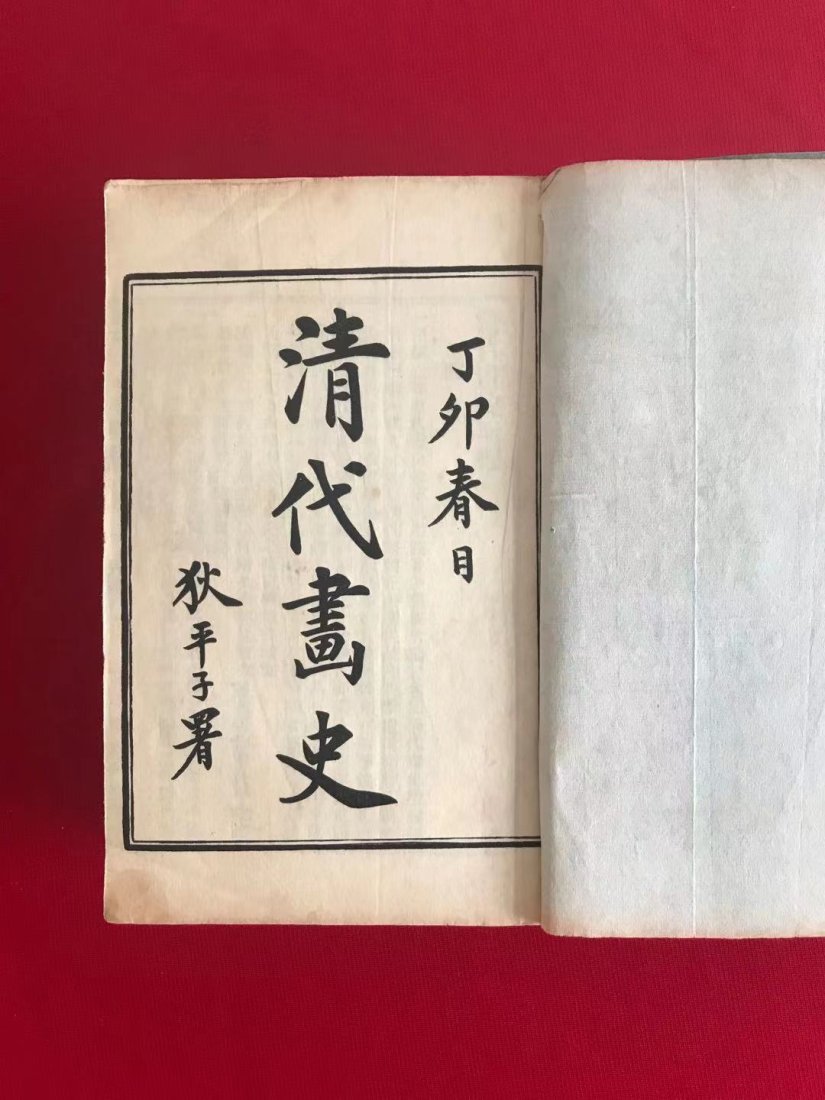 丁卯春日
清代畫史
狄平子署